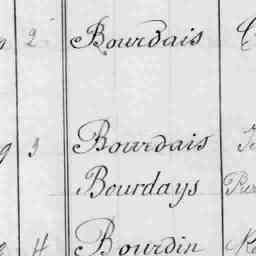 2 Bourdais
9 3 Bourdais
Bourdays
4 Bourdin